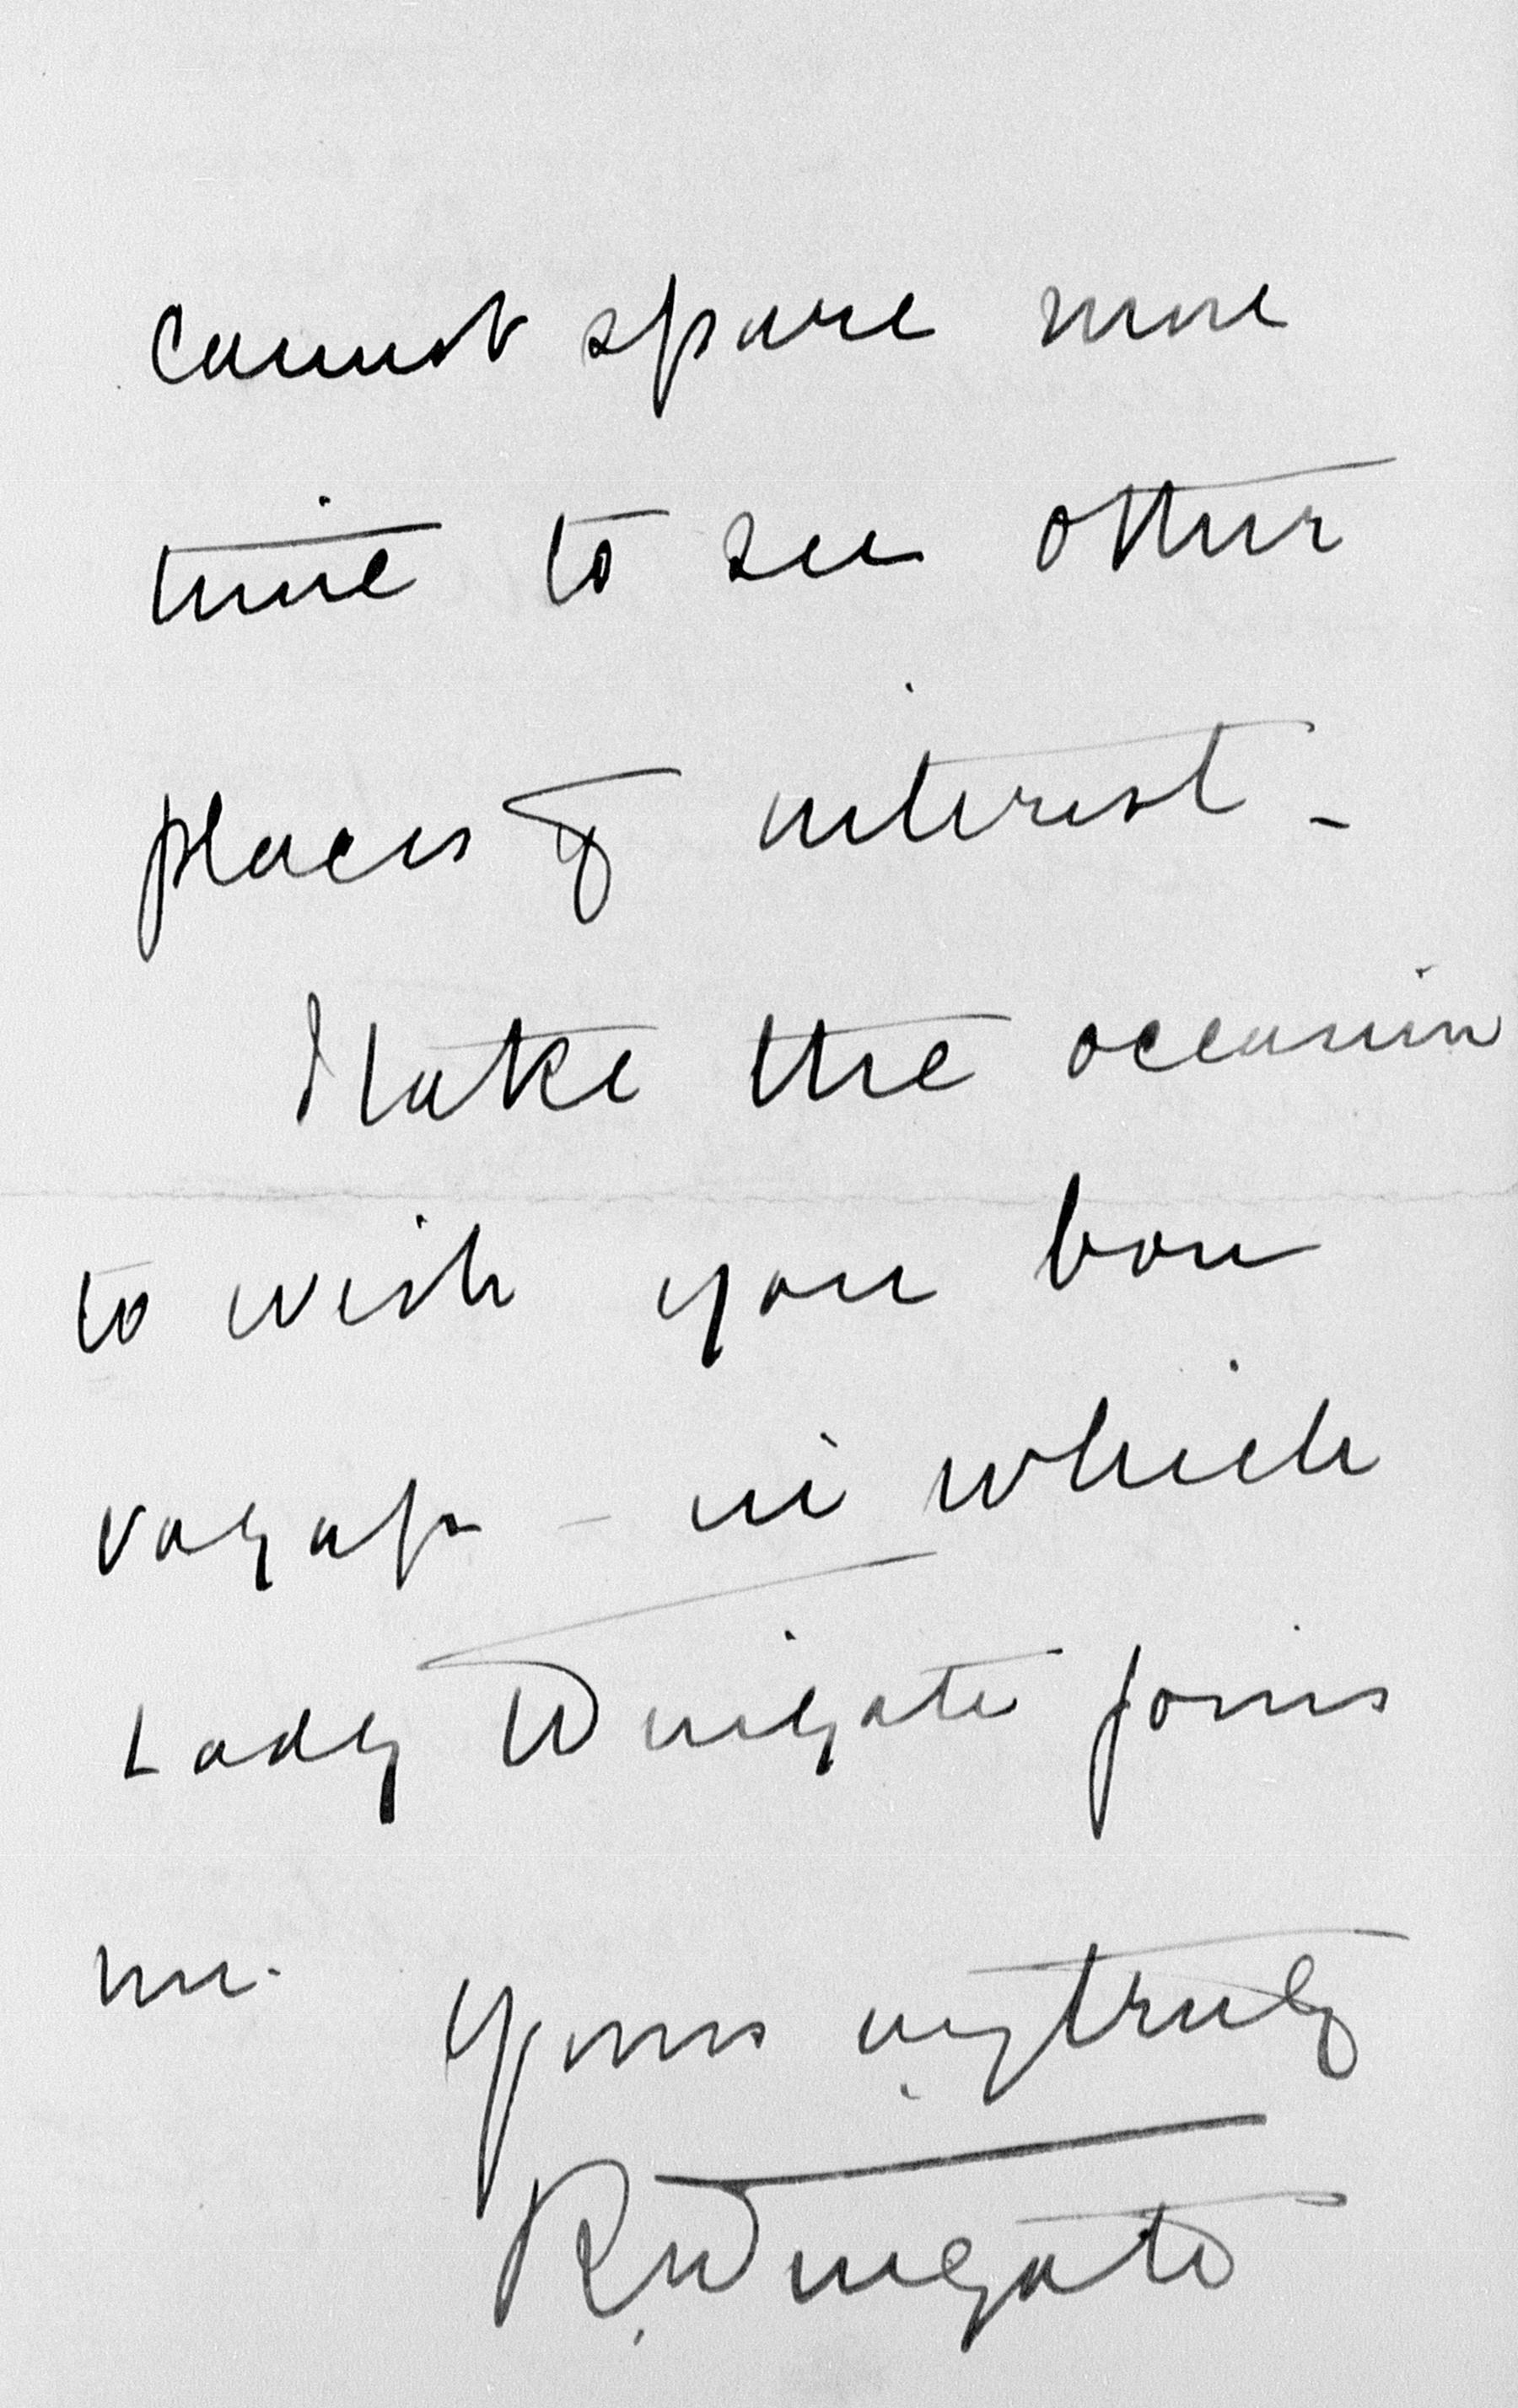 cannot spare more
time to see other
places of interest -
I take the occasion
to wish you bon
voyage - in which
Lady Wingate joins
me.
Yours very truly
R. Wingate